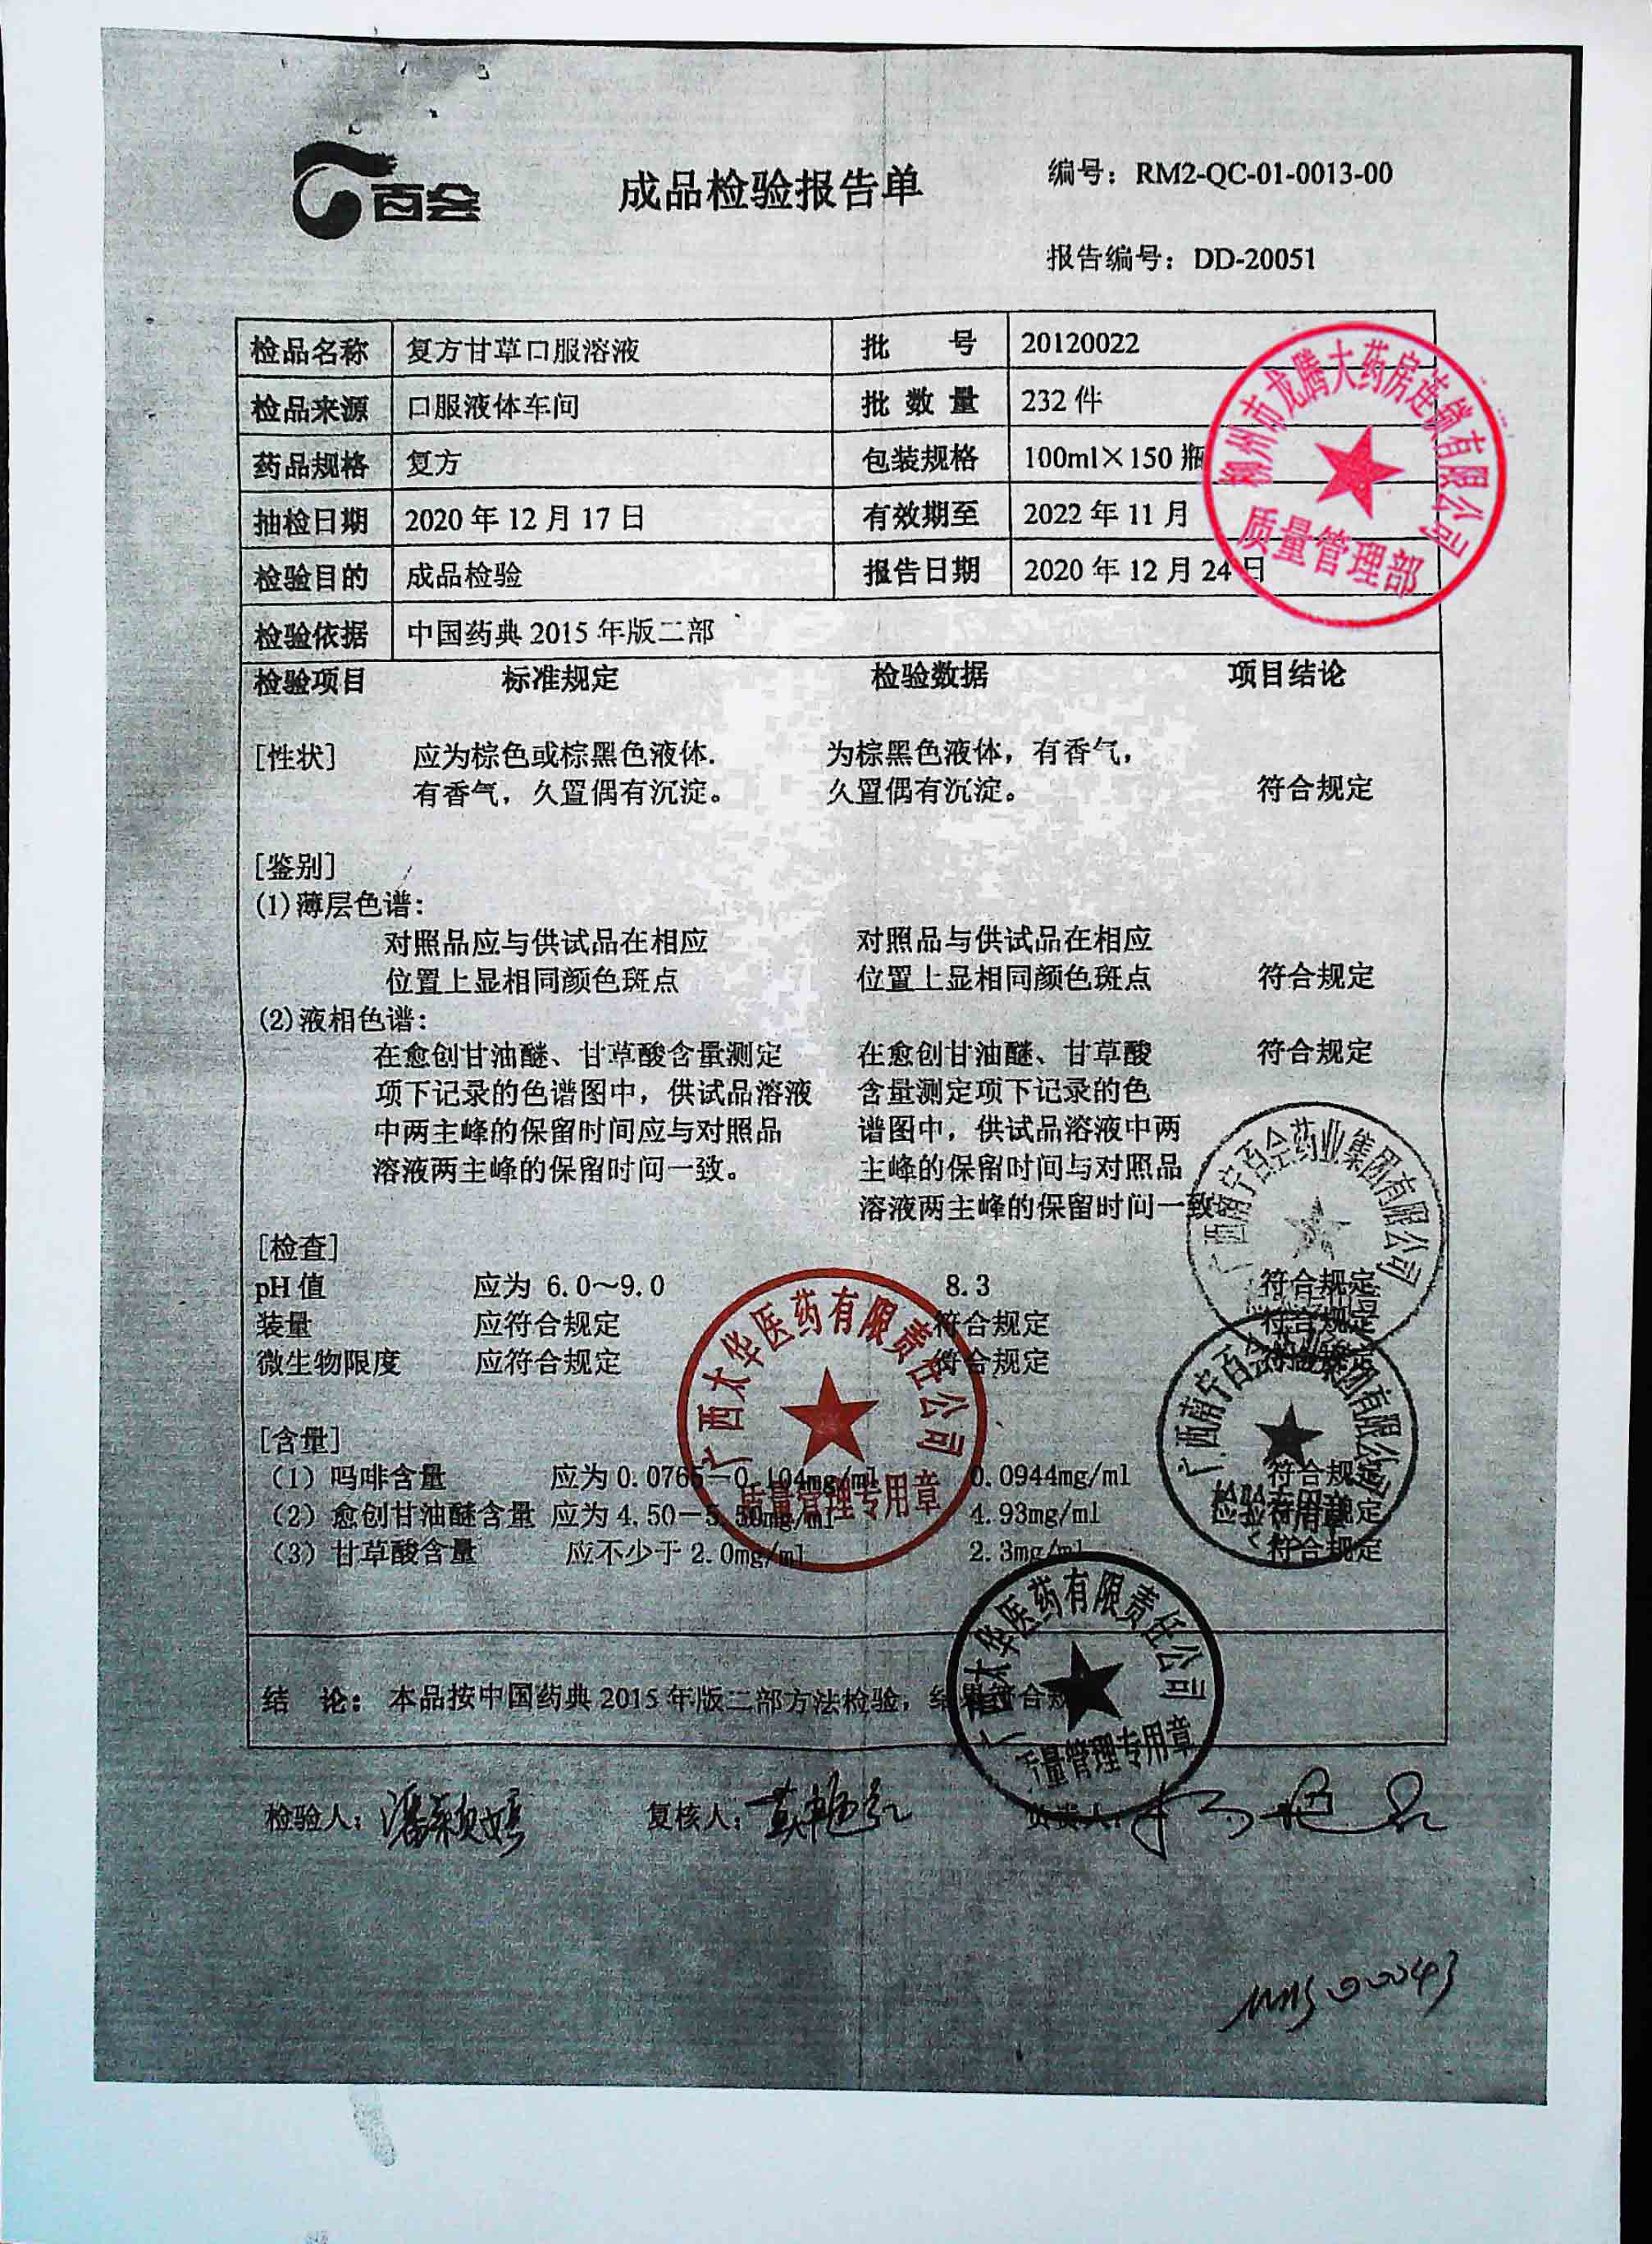 百会
成品检验报告单
编号：RM2-QC-01-0013-00
报告编号：DD-20051
检品名称 复方甘草口服溶液 批 号 20120022
检品来源 口服液体车间 批数量 232 件
药品规格 复方 包装规格 100ml×150 瓶
抽检日期 2020 年 12 月 17 日 有效期至 2022 年 11 月
检验目的 成品检验 报告日期 2020 年 12 月 24 日
检验依据 中国药典 2015 年版二部
柳州市龙腾大药房连锁有限公司
质量管理部
检验项目 标准规定 检验数据 项目结论
[性状] 应为棕色或棕黑色液体. 为棕黑色液体，有香气，
有香气，久置偶有沉淀。 久置偶有沉淀。 符合规定
[鉴别]
(1)薄层色谱：
对照品应与供试品在相应 对照品与供试品在相应
位置上显相同颜色斑点 位置上显相同颜色斑点 符合规定
(2)液相色谱：
在愈创甘油醚、甘草酸含量测定 在愈创甘油醚、甘草酸 符合规定
项下记录的色谱图中，供试品溶液 含量测定项下记录的色
中两主峰的保留时间应与对照品 谱图中，供试品溶液中两
溶液两主峰的保留时间一致。 主峰的保留时间与对照品
溶液两主峰的保留时间一致
广西南宁百会药业集团有限公司
[检查]
pH 值 应为 6.0～9.0 8.3 符合规定
装量 应符合规定 符合规定 符合规定
微生物限度 应符合规定 符合规定
广西太华医药有限责任公司
质量管理专用章
广西南宁百会药业集团有限公司
检验专用章
[含量]
（1）吗啡含量 应为 0.0765－0.104mg/ml 0.0944mg/ml 符合规定
（2）愈创甘油醚含量 应为 4.50－5.50mg/ml 4.93mg/ml 符合规定
（3）甘草酸含量 应不少于 2.0mg/ml 2.3mg/ml 符合规定
广西太华医药有限责任公司
质量管理专用章
结 论： 本品按中国药典 2015 年版二部方法检验，结果符合规
检验人： 复核人： 负责人：